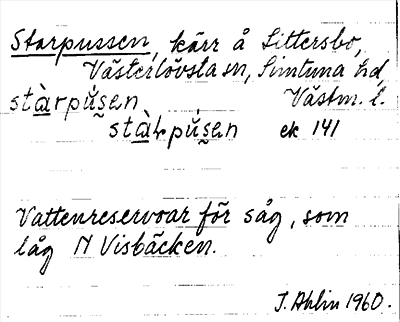 Starpussen, kärr å Sittersbo,
Västerlövsta sn, Simtuna hd,
stàrpúsen Västm. l.
stàrpúsen ek 141
Vattenreservoar för såg, som
låg N Visbäcken.
J. Ahlin 1960.